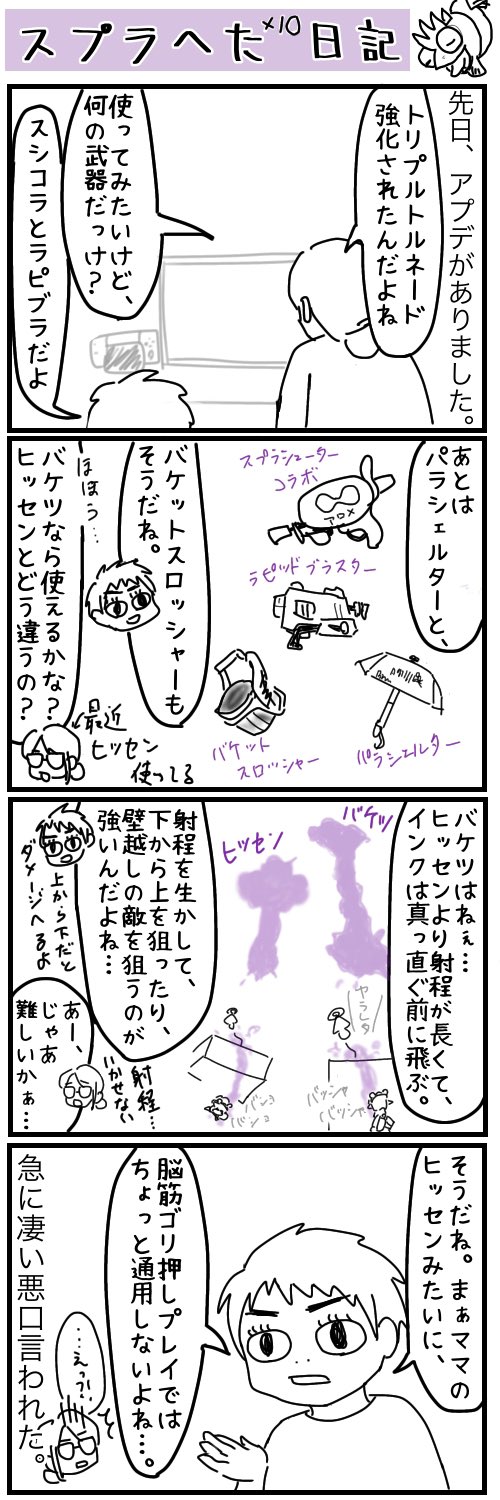 スプラへた×10日記
先日、アプデがありました。
トリプルトルネード
強化されたんだよね
使ってみたいけど、
何の武器だっけ？
スシコラとラピブラだよ
あとは
パラシェルターと、
スプラシューター
コラボ
ラピッドブラスター
バケット
スロッシャー
パラシェルター
バケットスロッシャーも
そうだね。
ほほう…
バケツなら使えるかな？
ヒッセンとどう違うの？
最近
ヒッセン
使ってる
バケツはねぇ…
ヒッセンより射程が長くて、
インクは真っ直ぐ前に飛ぶ。
バケツ
ヒッセン
ヤラレタ
バッシャ
バッシャ
バショ
バショ
射程を生かして、
下から上を狙ったり、
壁越しの敵を狙うのが
強いんだよね…
上から下だと
ダメージへるよ
あー、
じゃあ
難しいかぁ…
射程…
いかせない
そうだね。まぁママの
ヒッセンみたいに、
脳筋ゴリ押しプレイでは
ちょっと通用しないよね…。
……えっ?!
急に凄い悪口言われた。